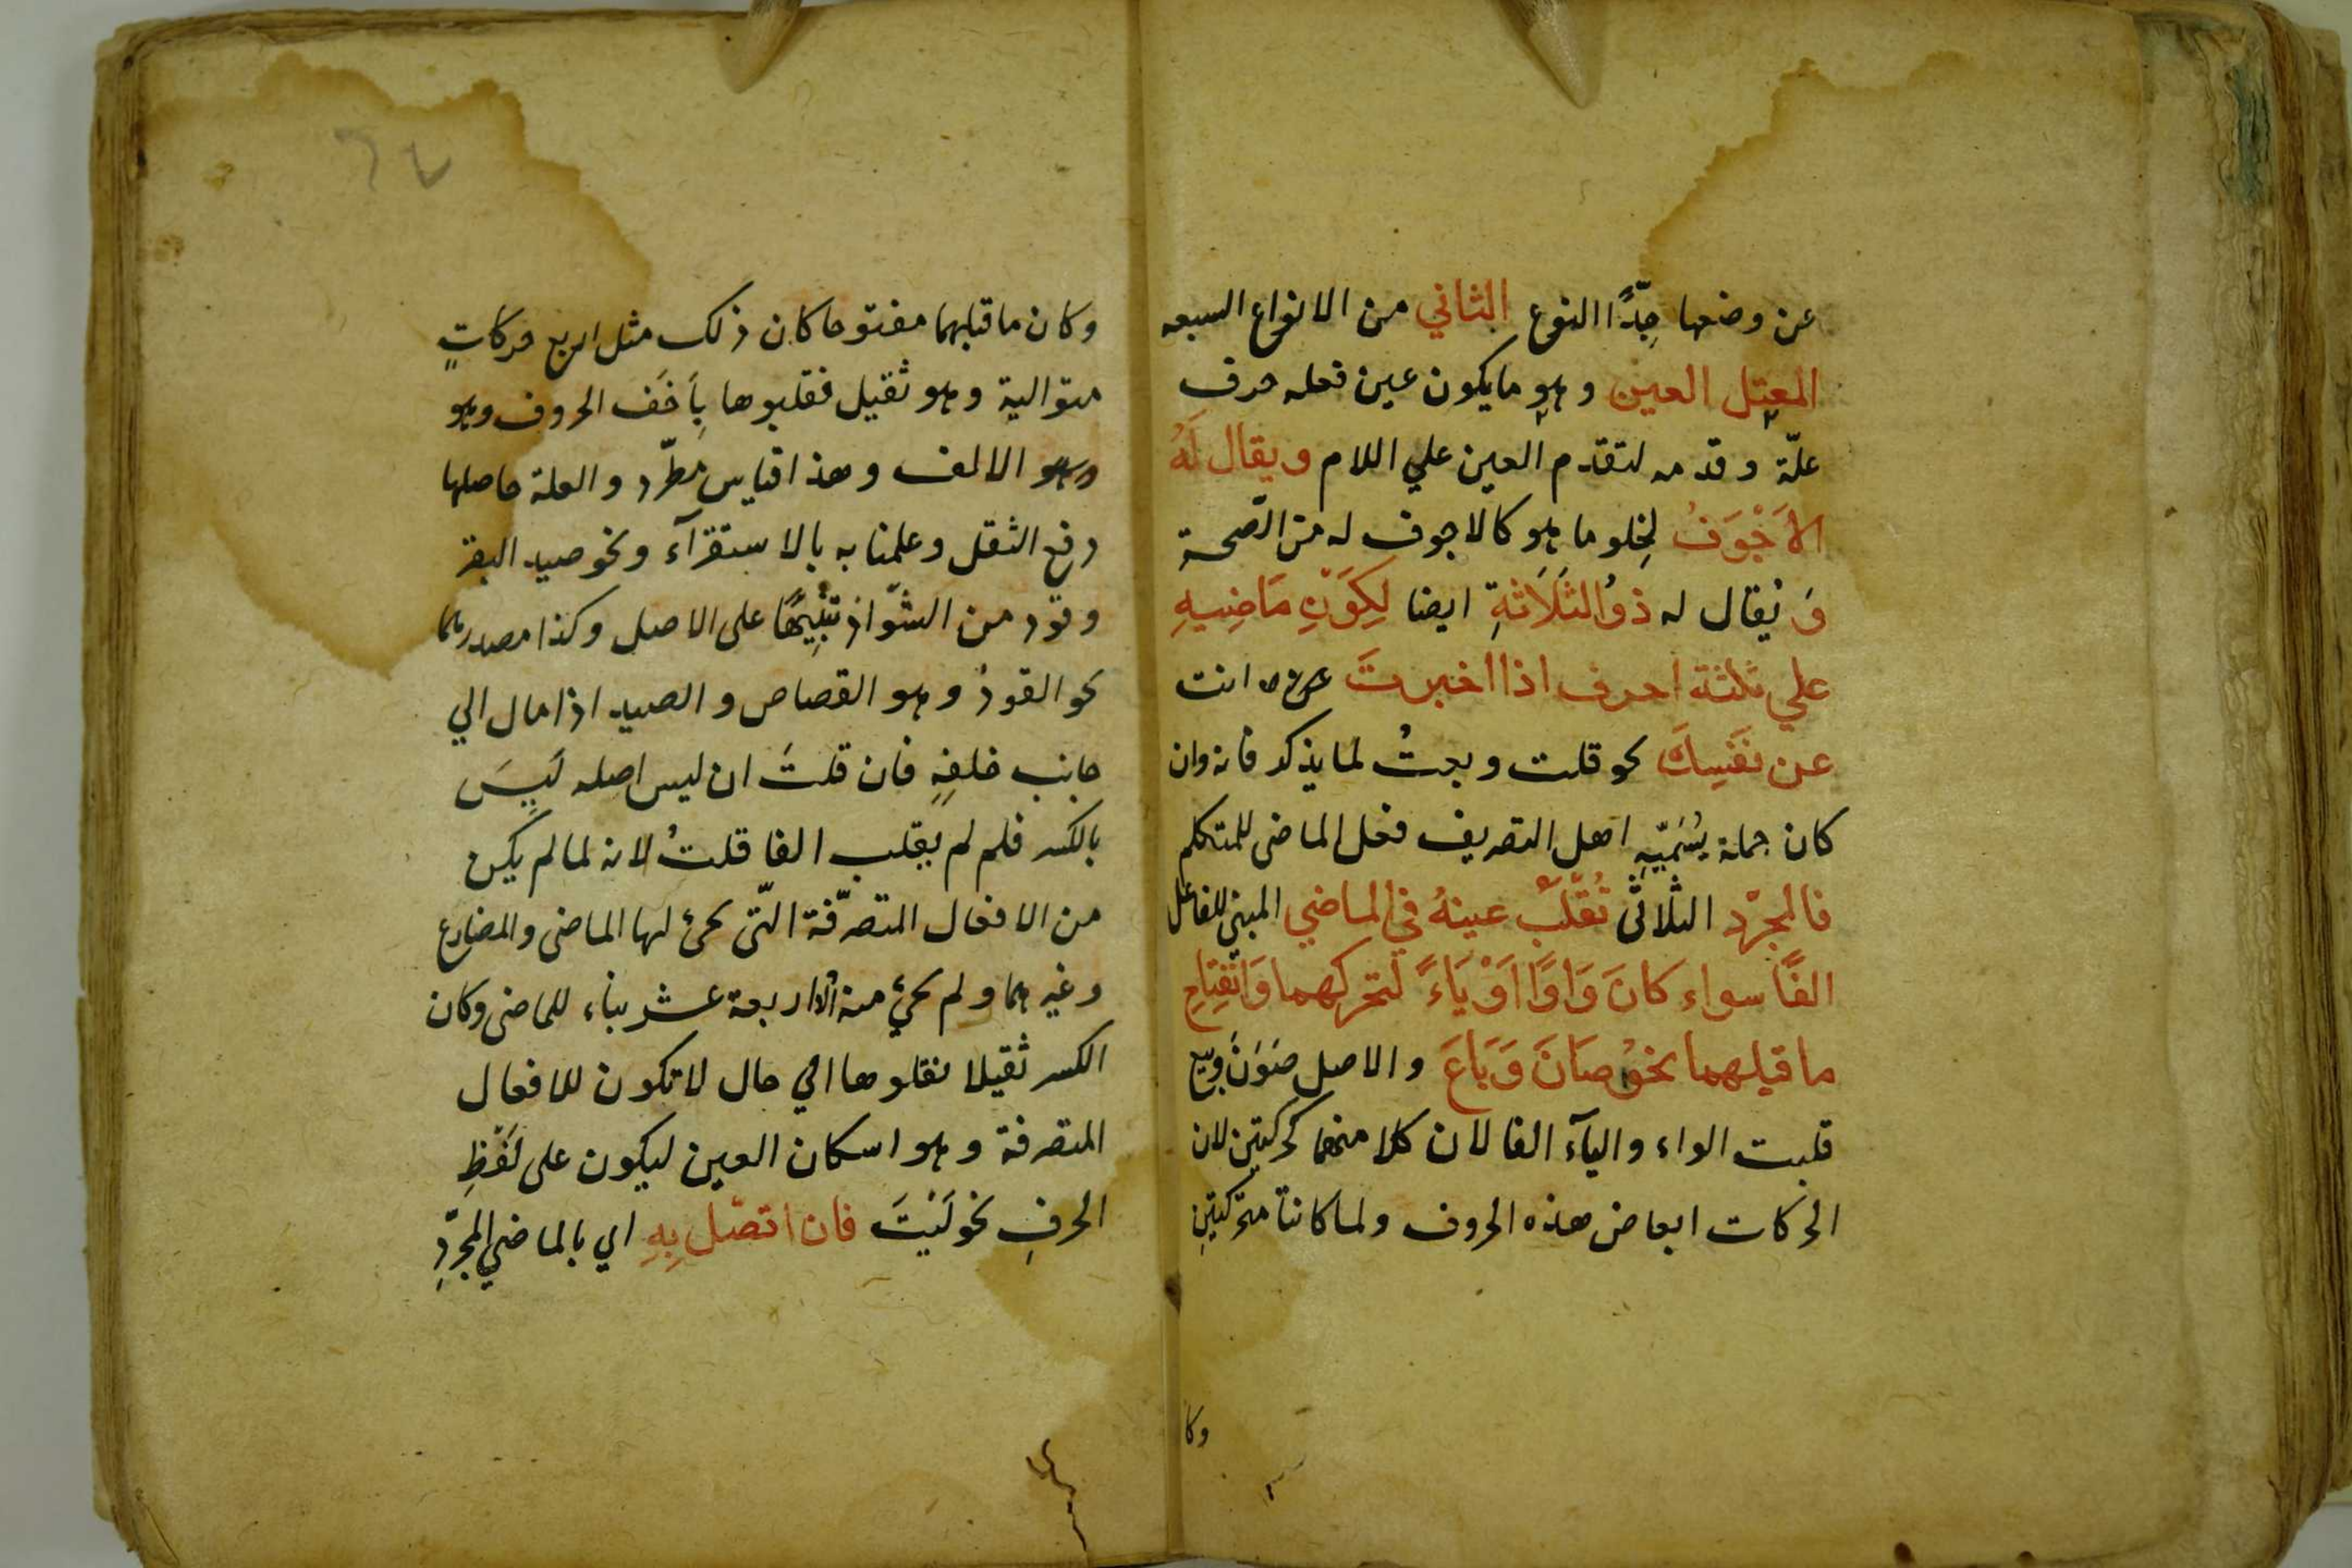 عن وضعها جِدًّا النوع الثاني من الانواع السبعه
المعتل العين وهو ما يكون عين فعله حرف
علّة وقدمه لتقدم العين علي اللام ويقال لَهُ
الاَجْوَفُ لِخلو ما هو كالاجوف له من الصّحة
وَ يُقال له ذوُ الثَلَاَثةِ ايضا لِكَوَنِ مَاضِيهِ
علي ثلثة احرف اذا اخبرتَ انت
عن نَفَسِكَ نحو قلت وبعتُ لما يذكر فانه وان
كان جملة يُسَمّيِهِ اهل التصريف فعل الماضى للمتكلم
فالمجرّد الثلاثى تُقلَبُ عينهُ في الماضي المبني للفاعل
الفًا سواء كانَ وَاوًا اَوْ يَاءً لتحركهما وَانْفِتاحِ
ما قبلهما نحوُ صَانَ وَبَاعَ والاصل صَوَنَ وبيع
قلبت الواء والياۤء الفا لان كلا منهما كحركتين لان
الحركات ابعاض هذه الحروف ولما كانتا متحّركتينِ
وكا
وكان ما قبلهما مفتوحا كان ذلك مثل اربع حركاتٍ
متوالية وهو ثقيل فقلبوها بِاَخَف الحروف وهو
وهو الالف وهذا قياس مطّرد والعلة حاصلها
رفع الثقل وعلمنا به بالاستقرآء ونحو صيد البعر
وقود من الشّواذ تنْبِيهًا على الاصل وكذا مصدرهما
نحو القود وهو القصاص والصيد اذا مال الي
جانب خلفِهِ فان قلتَ ان ليس اصله لَيِسَ
بالكسر فلم لم يقلب الفا قلتُ لانه لما لم يكن
من الافعال المتصرّفة الّتى يجئ لها الماضى والمضارع
وغيرهما ولم يجيء منه الا اربعة عشر بناء للماضى وكان
الكسر ثقيلا نقلوها الي حال لا تكون للافعال
المتصرفة وهو اسكان العين ليكون على لَفْظِ
الحرفِ نحو لَيْتَ فان اتصّل بِهِ اي بالماضي المجرّدِ